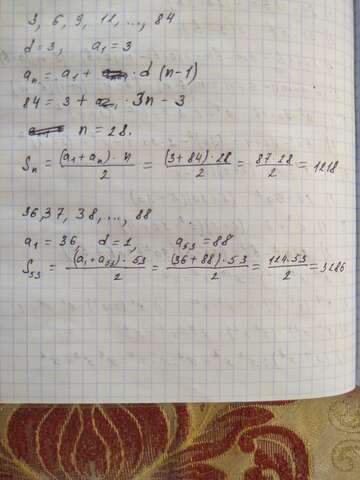 3, 6, 9, 12, ..., 84
d = 3, a₁ = 3
aₙ = a₁ + d (n-1)
84 = 3 + 3n - 3
n = 28.
Sₙ = (a₁ + aₙ) · n / 2 = (3 + 84) · 28 / 2 = 87 · 28 / 2 = 1218
36, 37, 38, ..., 88
a₁ = 36, d = 1, a₅₃ = 88
S₅₃ = (a₁ + a₅₃) · 53 / 2 = (36 + 88) · 53 / 2 = 124 · 53 / 2 = 3286